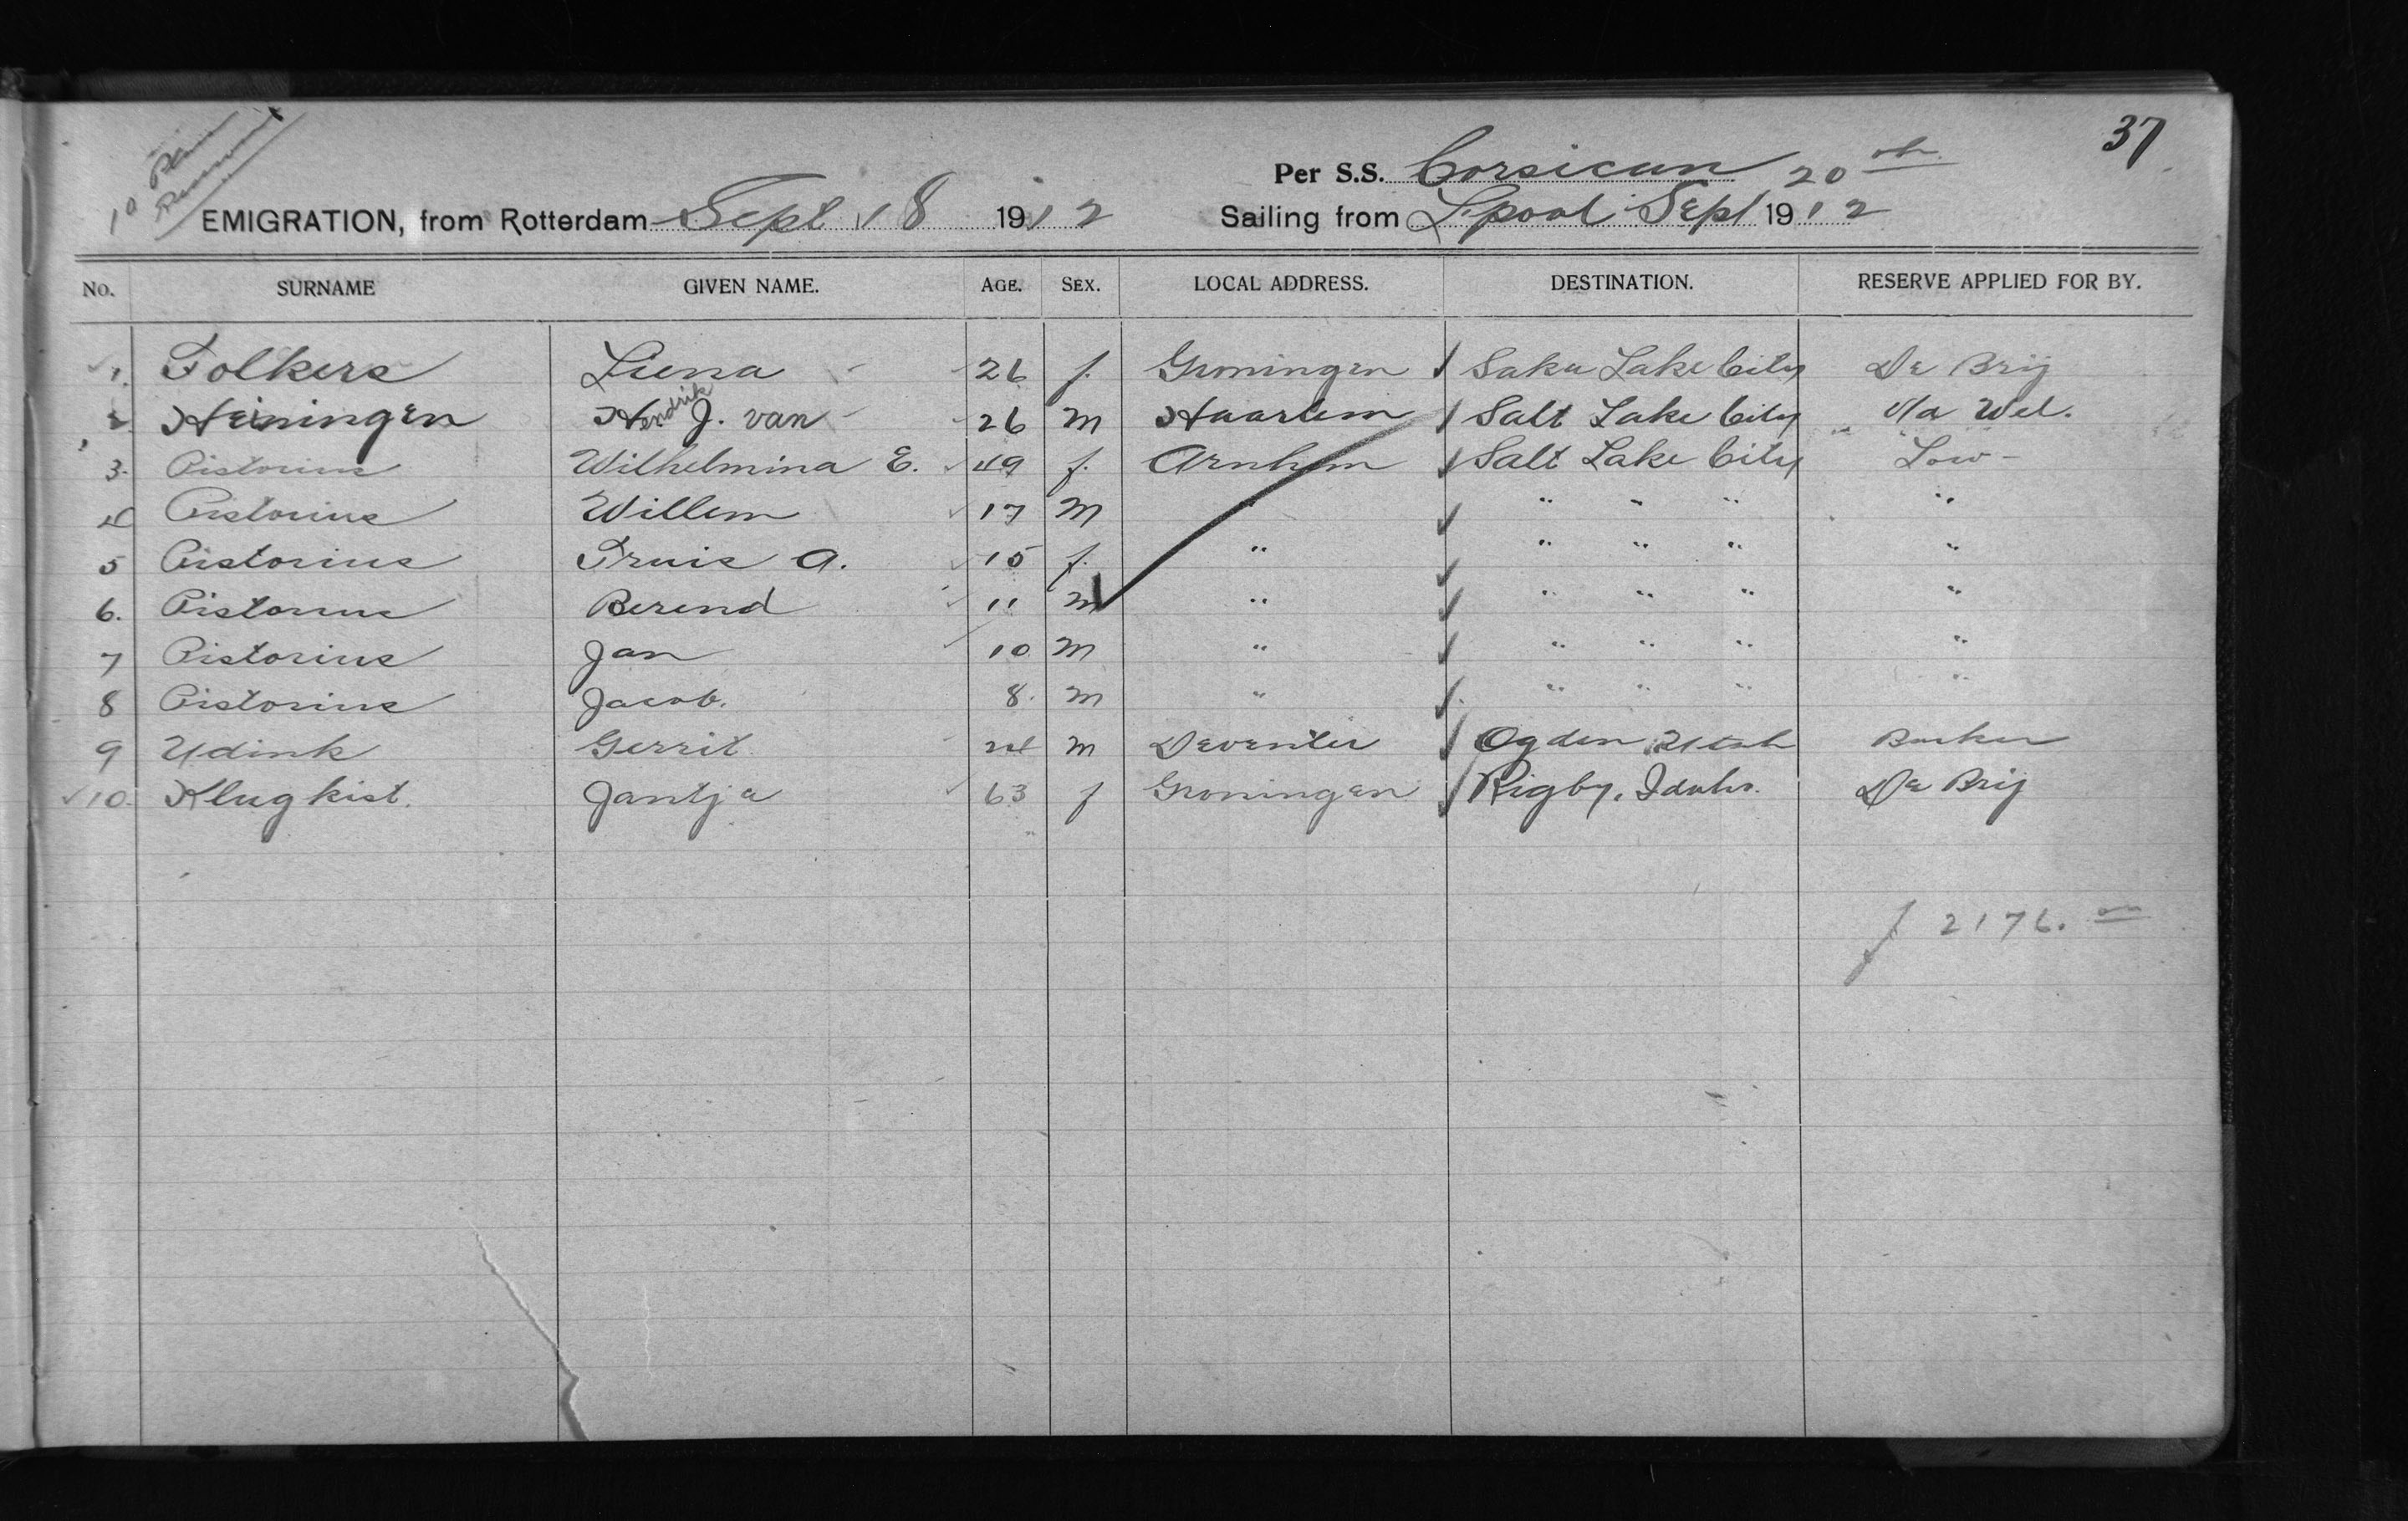 37
Per S.S. Corsican 20th
EMIGRATION, from Rotterdam Sept 18 1912 Sailing from L.pool Sept 1912
No. SURNAME GIVEN NAME. AGE. SEX. LOCAL ADDRESS. DESTINATION. RESERVE APPLIED FOR BY.
1. Folkers Liena 26 f. Groningen Lake City De Brij
2. Heiningen Hendrik J. van 26 m Haarlem Salt Lake City v/d Wel.
3. Pistorius Wilhelmina E. 49 f. Arnhem Salt Lake City Low
4 Pistorius Willem 17 m " " " " "
5 Pistorius Truis A. 15 f. " " " " "
6. Pistorius Berend 11 m " " " " "
7 Pistorius Jan 10 m " " " " "
8 Pistorius Jacob. 8. m " " " " "
9 Udink Gerrit 24 m Deventer Ogden Utah
10. Klugkist. Jantje 63 f Groningen Rigby, Idaho. De Brij
f 2176.